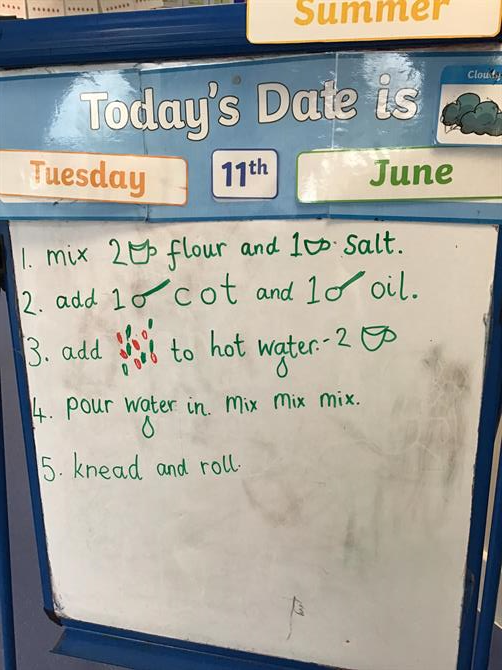 Summer
Cloudy
Today's Date is
Tuesday 11th June
1. mix 2 flour and 1 salt.
2. add 1 cot and 1 oil.
3. add to hot water.-2
4. pour water in. mix mix mix.
5. knead and roll.